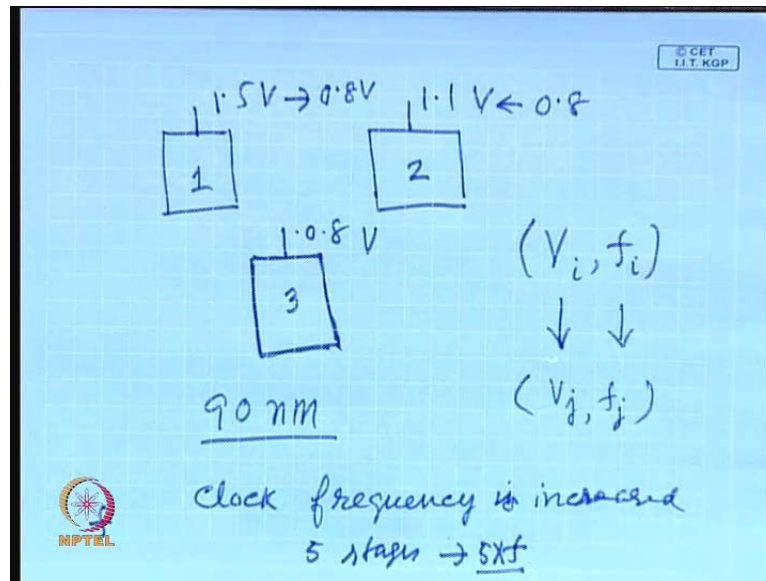 © CET
I.I.T. KGP
1.5V→0.8V
1.1 V ← 0.8
1
2
1.0.8 V
3
(Vi, fi)
↓ ↓
(Vj, fj)
90 nm
Clock frequency is increased
5 stages → 5xf
NPTEL